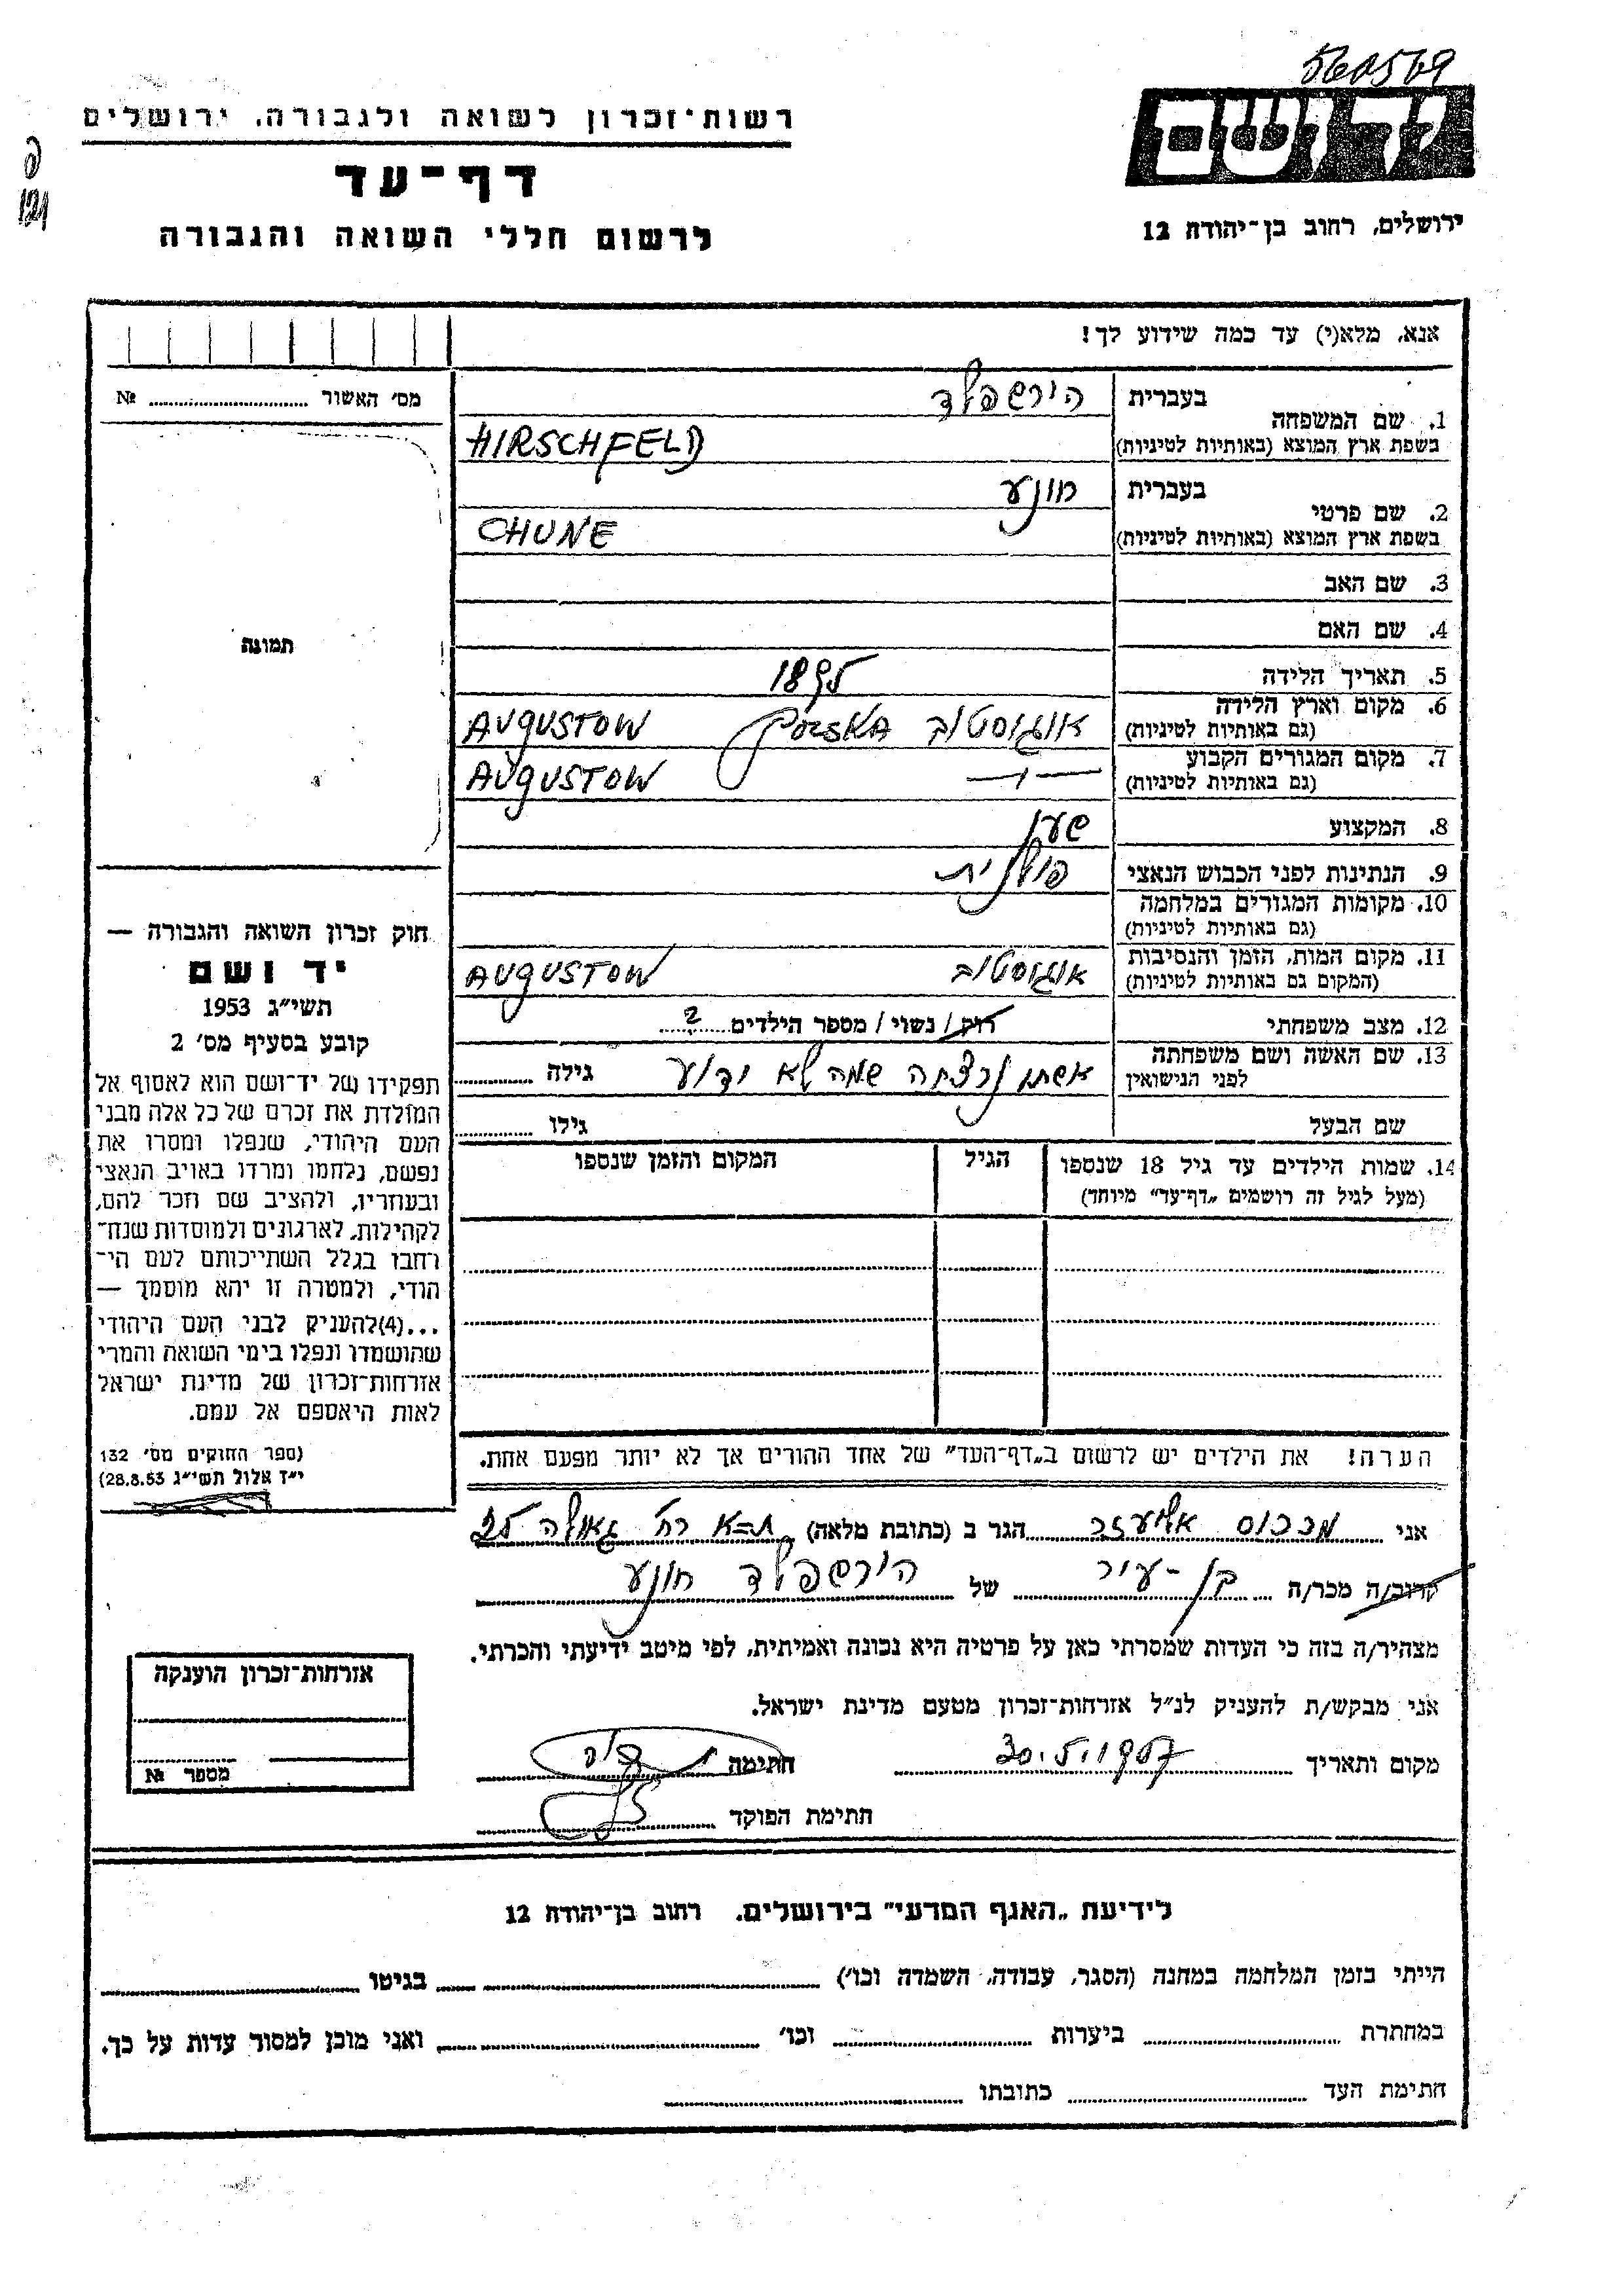 560569
רשות־זכרון לשואה ולגבורה, ירושלים
דף־עד
לרשום חללי השואה והגבורה
יד ושם
ירושלים, רחוב בן־יהודה 12
אנא, מלא(י) עד כמה שידוע לך!
מס׳ האשור ........ №
תמונה
1. שם המשפחה בעברית הירשפלד
בשפת ארץ המוצא (באותיות לטיניות) HIRSCHFELD
2. שם פרטי בעברית חונע
בשפת ארץ המוצא (באותיות לטיניות) CHUNE
3. שם האב
4. שם האם
5. תאריך הלידה 1895
6. מקום וארץ הלידה (גם באותיות לטיניות) אוגוסטוב POLSKA AUGUSTOW
7. מקום המגורים הקבוע (גם באותיות לטיניות) —״— AUGUSTOW
8. המקצוע שען
9. הנתינות לפני הכבוש הנאצי פולנית
10. מקומות המגורים במלחמה (גם באותיות לטיניות)
11. מקום המות, הזמן והנסיבות (המקום גם באותיות לטיניות) אוגוסטוב AUGUSTOW
12. מצב משפחתי רוק/ נשוי/ מספר הילדים 2
13. שם האשה ושם משפחתה לפני הנישואין אשתו נרצחה שמה לא ידוע גילה ........
שם הבעל גילו ........
14. שמות הילדים עד גיל 18 שנספו הגיל המקום והזמן שנספו
(מעל לגיל זה רושמים „דף־עד״ מיוחד)
הערה! את הילדים יש לרשום ב„דף־העד״ של אחד ההורים אך לא יותר מפעם אחת.
חוק זכרון השואה והגבורה —
יד ושם
תשי״ג 1953
קובע בסעיף מס׳ 2
תפקידו של יד־ושם הוא לאסוף אל
המולדת את זכרם של כל אלה מבני
העם היהודי, שנפלו ומסרו את
נפשם, נלחמו ומרדו באויב הנאצי
ובעוזריו, ולהציב שם וזכר להם,
לקהילות, לארגונים ולמוסדות שנח־
רבו בגלל השתייכותם לעם הי־
הודי, ולמטרה זו יהא מוסמך —
...(4)להעניק לבני העם היהודי
שהושמדו ונפלו בימי השואה והמרי
אזרחות־זכרון של מדינת ישראל
לאות היאספם אל עמם.
(ספר החוקים מס׳ 132
י״ד אלול תשי״ג 28.8.53)
אני מרכוס אליעזר הגר ב (כתובת מלאה) ת=א רח׳ גאולה 25
קרוב/ה מכר/ה בן-עיר של הירשפלד חונע
מצהיר/ה בזה כי העדות שמסרתי כאן על פרטיה היא נכונה ואמיתית, לפי מיטב ידיעתי והכרתי.
אני מבקש/ת להעניק לנ״ל אזרחות־זכרון מטעם מדינת ישראל.
מקום ותאריך 30.5.1957 חתימה
חתימת הפוקד
אזרחות־זכרון הוענקה
מספר №
לידיעת „האגף המדעי״ בירושלים, רחוב בן־יהודה 12
הייתי בזמן המלחמה במחנה (הסגר, עבודה, השמדה וכו׳) ........ בגיטו ........
במחתרת ........ ביערות ........ וכו׳ ........ ואני מוכן למסור עדות על כך.
חתימת העד ........ כתובתו ........